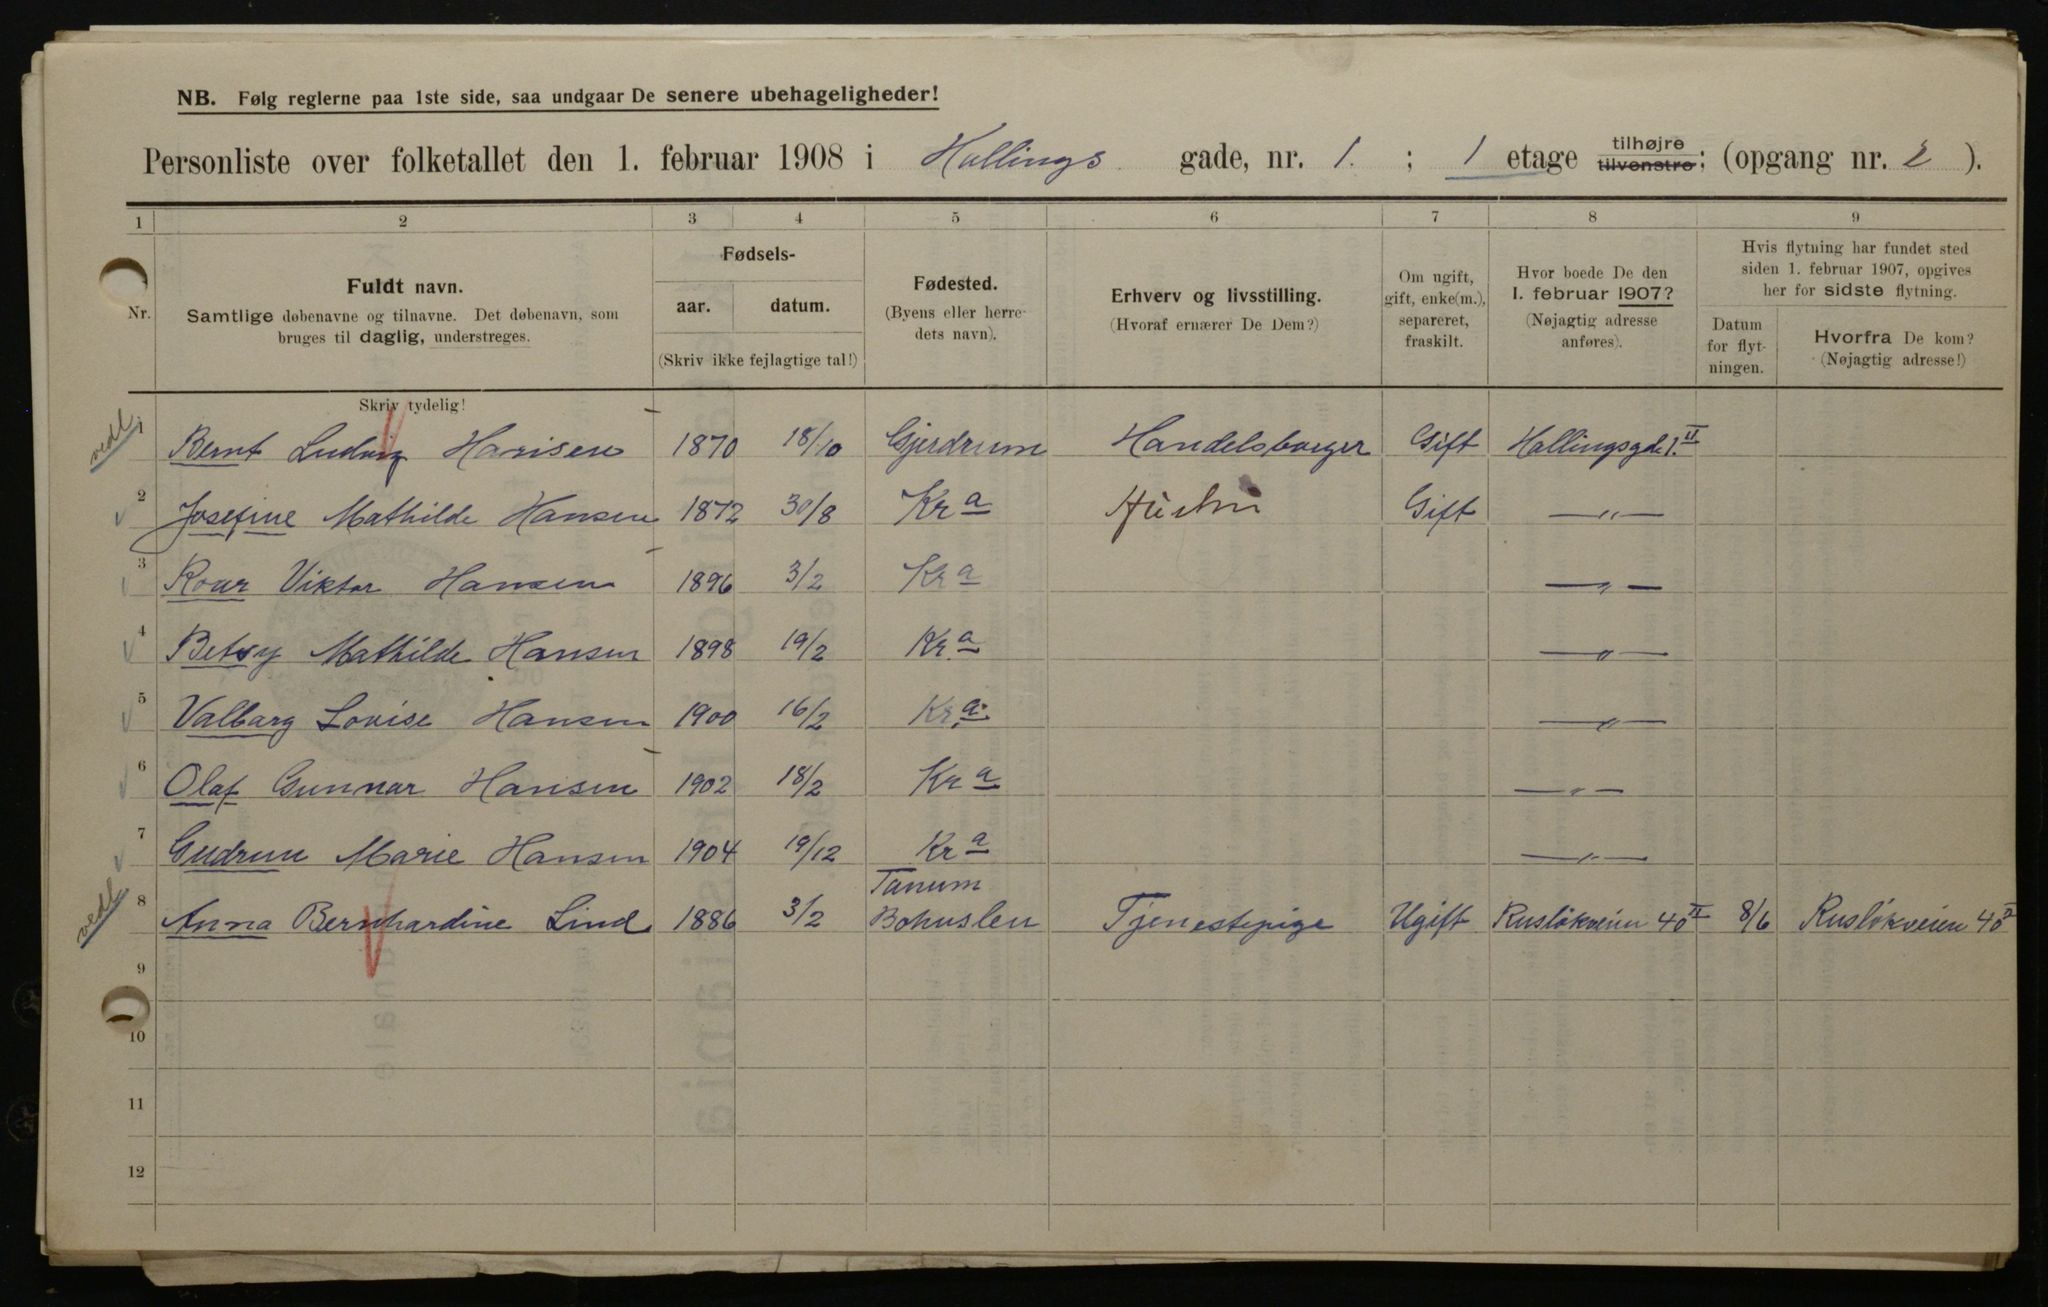 NB. Følg reglerne paa 1ste side, saa undgaar De senere ubehageligheder!
Personliste over folketallet den 1. februar 1908 i Hallings gade, nr. 1. ; 1 etage tilhøjre tilvenstre; (opgang nr. 2 ).
1 2 3 4 5 6 7 8 9
Nr.
Fuldt navn.
Samtlige døbenavne og tilnavne. Det døbenavn, som
bruges til daglig, understreges.
Skriv tydelig!
Fødsels-
aar. datum.
(Skriv ikke fejlagtige tal!)
Fødested.
(Byens eller herre-
dets navn).
Erhverv og livsstilling.
(Hvoraf ernærer De Dem?)
Om ugift,
gift, enke(m.),
separeret,
fraskilt.
Hvor boede De den
1. februar 1907?
(Nøjagtig adresse
anføres).
Hvis flytning har fundet sted
siden 1. februar 1907, opgives
her for sidste flytning.
Datum
for flyt-
ningen.
Hvorfra De kom?
(Nøjagtig adresse!)
vedl. 1 Bernt Ludvig Hansen 1870 18/10 Gjerdrum Handelsborger Gift Hallingsgd. 1. II
2 Josefine Mathilde Hansen 1872 30/8 Kra Hustru Gift —〃—
3 Roar Viktor Hansen 1896 3/2 Kra —〃—
4 Betsy Mathilde Hansen 1898 19/2 Kra —〃—
5 Valbarg Lovise Hansen 1900 16/2 Kra. —〃—
6 Olaf Gunnar Hansen 1902 18/2 Kra —〃—
7 Gudrun Marie Hansen 1904 19/12 Kra —〃—
vedl 8 Anna Bernhardine Lind 1886 3/2 Tanum Bohuslen Tjenestepige Ugift Rusløkveien 40 II 8/6 Rusløkveien 40 II
9
10
11
12